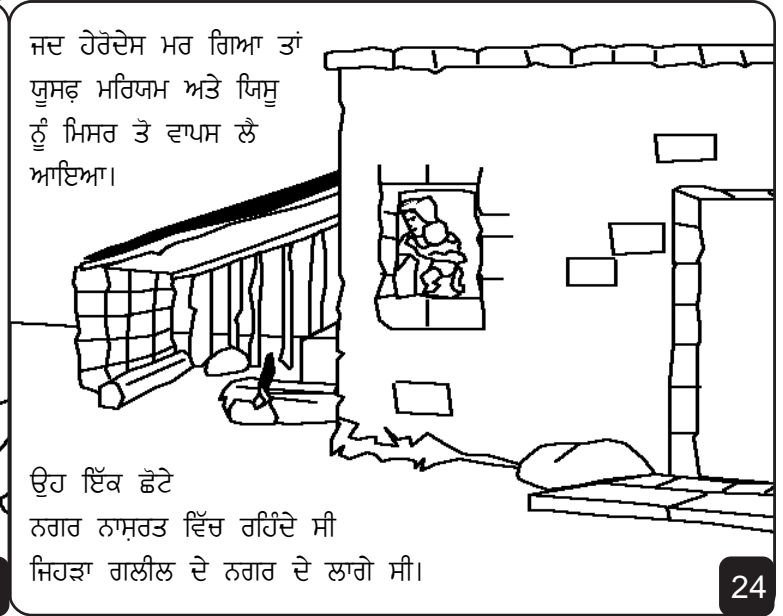 ਜਦ ਹੇਰੋਦੇਸ ਮਰ ਗਿਆ ਤਾਂ
ਯੂਸਫ਼ ਮਰਿਯਮ ਅਤੇ ਯਿਸੂ
ਨੂੰ ਮਿਸਰ ਤੋ ਵਾਪਸ ਲੈ
ਆਇਆ।
ਉਹ ਇੱਕ ਛੋਟੇ
ਨਗਰ ਨਾਸ਼ਰਤ ਵਿੱਚ ਰਹਿੰਦੇ ਸੀ
ਜਿਹੜਾ ਗਲੀਲ ਦੇ ਨਗਰ ਦੇ ਲਾਗੇ ਸੀ।
24